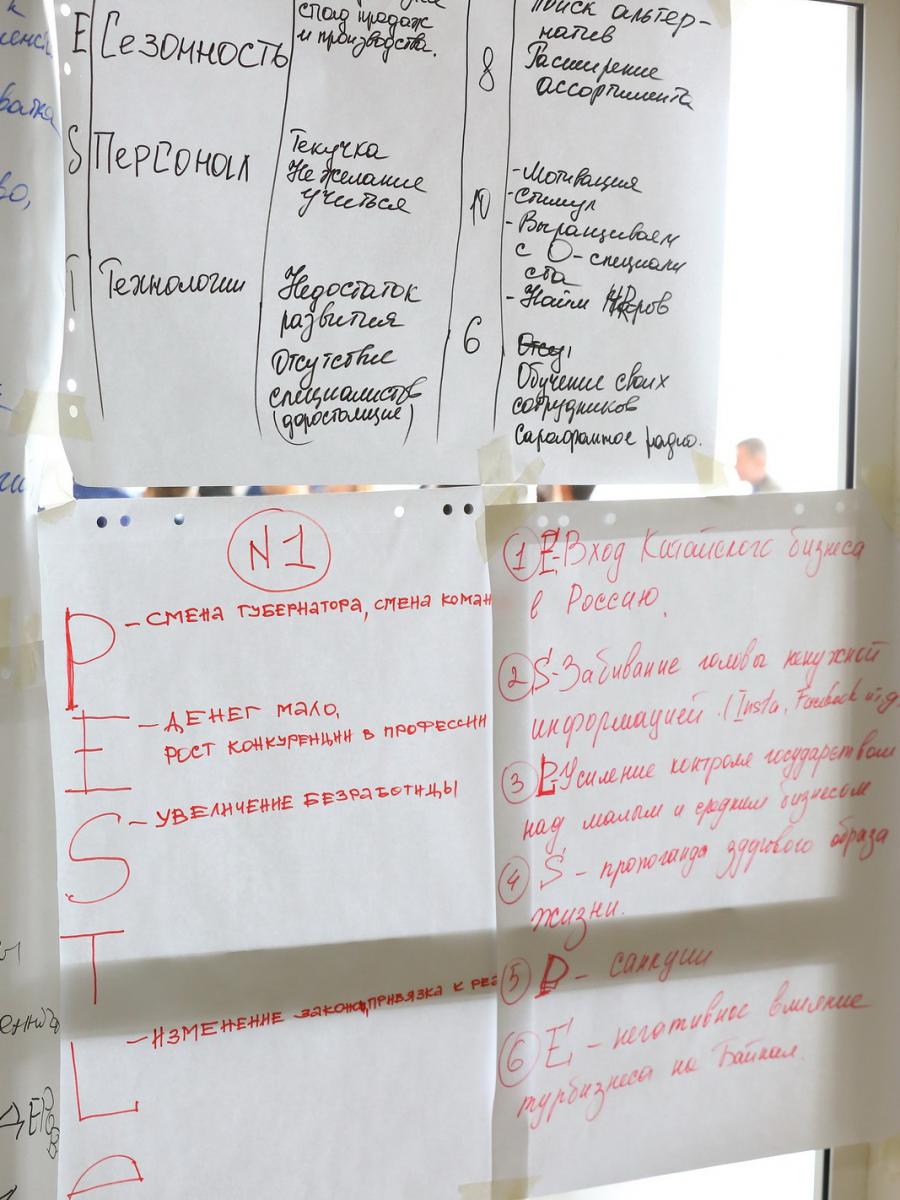 E Сезонность
спад продаж
и производства.
8
Поиск альтер-
натив
Расширение
ассортимента
S Персонал
Текучка
Не желание
учиться
10
-Мотивация
-Стимул
-Выращиваем
с 0-специали
ста
-Найм
T Технологии
Недостаток
развития
Отсутствие
специалистов
(доростающие)
6
Отсу
Обучение своих
сотрудников
Сарафанное радио.
N1
P - СМЕНА ГУБЕРНАТОРА, СМЕНА КОМАН
E - ДЕНЕГ МАЛО,
РОСТ КОНКУРЕНЦИИ В ПРОФЕССИИ
S - УВЕЛИЧЕНИЕ БЕЗРАБОТИЦЫ
T
L - ИЗМЕНЕНИЕ ЗАКОНО, ПРИВЯЗКА К РЕЗ
1 E-Вход Китайского бизнеса
в Россию.
2 S-Забивание головы ненужной
информацией. (Insta, Facebook и т.д
3 P-Усиление контроля государством
над малым и средним бизнесом
4 S - пропоганда здорового образа
жизни.
5 P - санкции
6 E - негативное влияние
турбизнеса на Байкал.